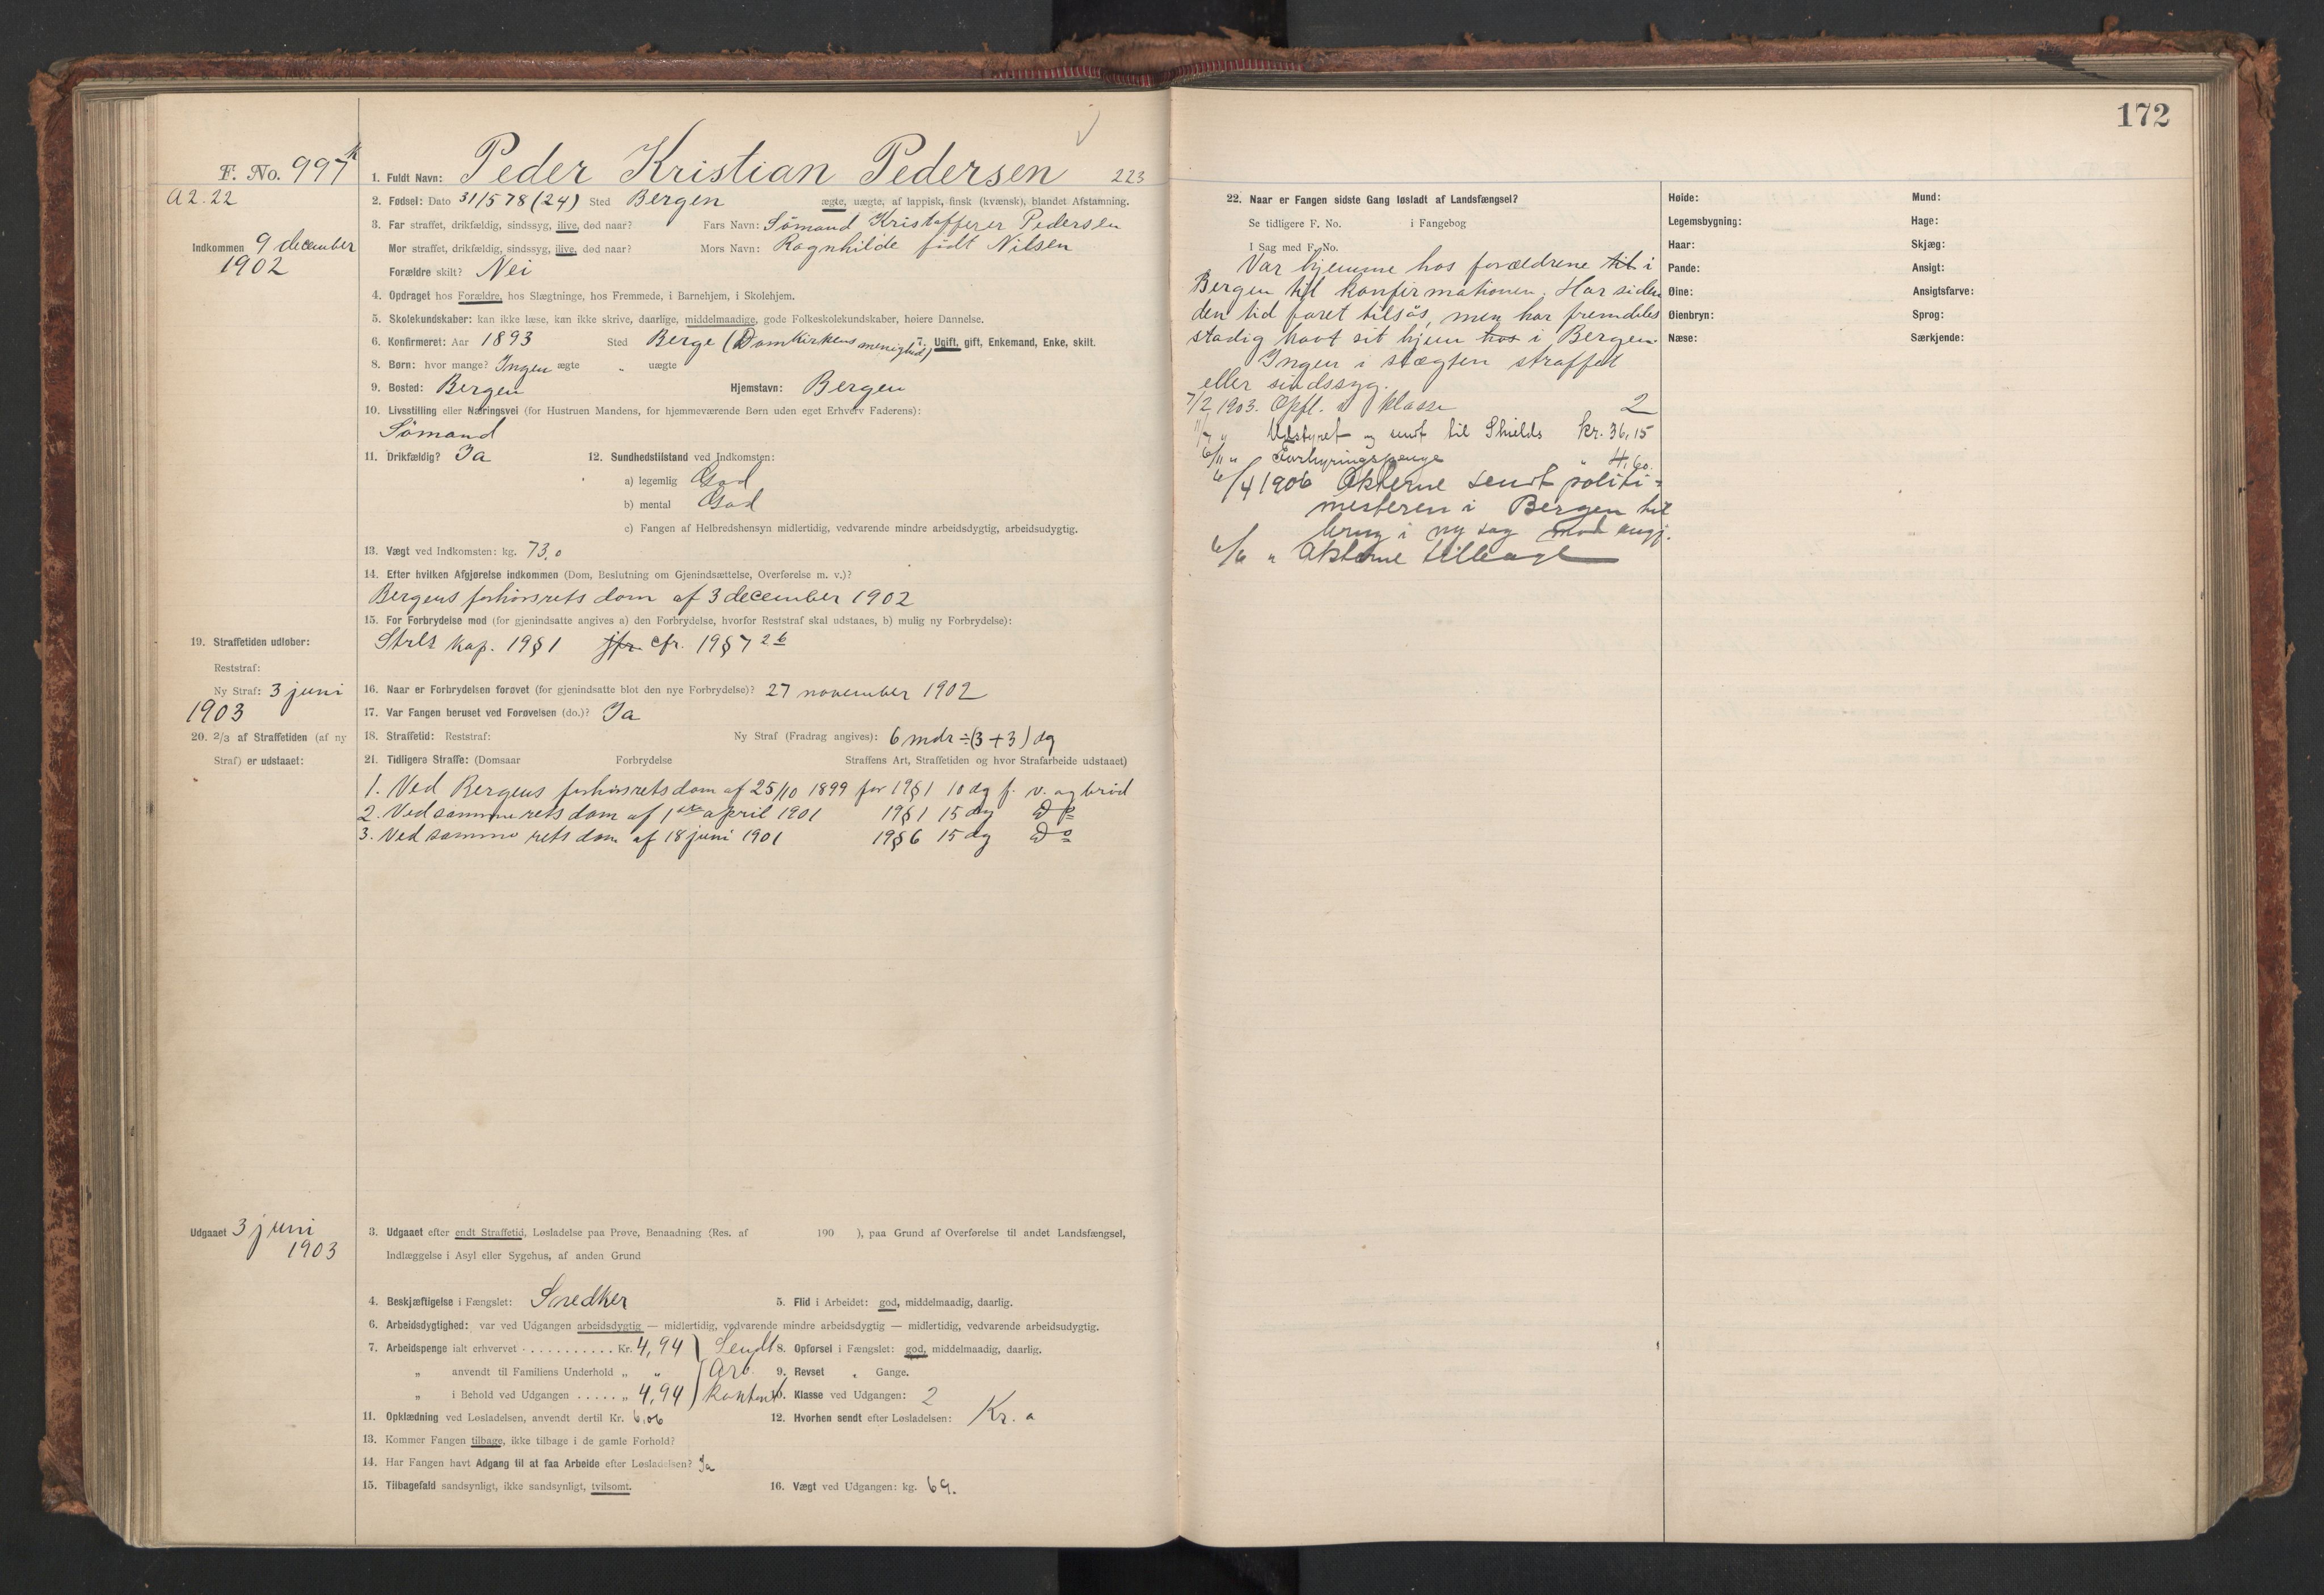 172
F. No. 997 k
A2. 22
1. Fuldt Navn: Peder Kristian Pedersen 223
2. Fødsel: Dato 31/5 78 (24) Sted Bergen ægte, uægte, af lappisk, finsk (kvænsk), blandet Afstamning.
3. Far straffet, drikfældig, sindssyg, ilive, død naar? Fars Navn: Sömand Kristofferer Pedersen
Indkommen 9 december
1902
Mor straffet, drikfældig, sindssyg, ilive, død naar? Mors Navn: Ragnhilde födt Nilsen
Forældre skilt? Nei
4. Opdraget hos Forældre, hos Slægtninge, hos Fremmede, i Barnehjem, i Skolehjem.
5. Skolekundskaber: kan ikke læse, kan ikke skrive, daarlige, middelmaadige, gode Folkeskolekundskaber, høiere Dannelse.
6. Konfirmeret: Aar 1893 Sted Berge (Domkirkens menighed) 7. Ugift, gift, Enkemand, Enke, skilt.
8. Børn: hvor mange? Ingen ægte „ uægte
9. Bosted: Bergen Hjemstavn: Bergen
10. Livsstilling eller Næringsvei (for Hustruen Mandens, for hjemmeværende Børn uden eget Erhverv Faderens):
Sömand
11. Drikfældig? Ja 12. Sundhedstilstand ved Indkomsten:
a) legemlig God
b) mental God
c) Fangen af Helbredshensyn midlertidig, vedvarende mindre arbeidsdygtig, arbeidsudygtig.
13. Vægt ved Indkomsten: kg. 73,0
14. Efter hvilken Afgjørelse indkommen (Dom, Beslutning om Gjenindsættelse, Overførelse m. v.)?
Bergens forhörsrets dom af 3 december 1902
15. For Forbrydelse mod (for gjenindsatte angives a) den Forbrydelse, hvorfor Reststraf skal udstaaes, b) mulig ny Forbrydelse):
Strls kap. 19 § 1 jfr cfr. 19 § 7 2 b
19. Straffetiden udløber:
Reststraf:
Ny Straf: 3 juni
1903
16. Naar er Forbrydelsen forøvet (for gjenindsatte blot den nye Forbrydelse)? 27 november 1902
17. Var Fangen beruset ved Forøvelsen (do.)? Ja
20. 2/3 af Straffetiden (af ny
Straf) er udstaaet:
18. Straffetid: Reststraf: Ny Straf (Fradrag angives): 6 mdr ÷ (3 + 3) dg
21. Tidligere Straffe: (Domsaar Forbrydelse Straffens Art, Straffetiden og hvor Strafarbeide udstaaet)
1. Ved Bergens forhörsrets dom af 25/10 1899 for 19 § 1 10 dg f. v. og bröd
2. Ved samme rets dom af 1ste april 1901 19 § 1 15 dg Do
3. Ved samme rets dom af 18 juni 1901 19 § 6 15 dg Do
Udgaaet 3 juni
1903
3. Udgaaet efter endt Straffetid, Løsladelse paa Prøve, Benaadning (Res. af 190 ), paa Grund af Overførelse til andet Landsfængsel,
Indlæggelse i Asyl eller Sygehus, af anden Grund
4. Beskjæftigelse i Fængslet: Snedker 5. Flid i Arbeidet: god, middelmaadig, daarlig.
6. Arbeidsdygtighed: var ved Udgangen arbeidsdygtig — midlertidig, vedvarende mindre arbeidsdygtig — midlertidig, vedvarende arbeidsudygtig.
7. Arbeidspenge ialt erhvervet . . . . . . . . . . . Kr. 4,94 Sendt 8. Opførsel i Fængslet: god, middelmaadig, daarlig.
„ anvendt til Familiens Underhold „ „ Arb. 9. Revset „ Gange.
„ i Behold ved Udgangen . . . . . „ 4,94 kontoret 10. Klasse ved Udgangen: 2
11. Opklædning ved Løsladelsen, anvendt dertil Kr. 6,06 12. Hvorhen sendt efter Løsladelsen: Kr. a
13. Kommer Fangen tilbage, ikke tilbage i de gamle Forhold?
14. Har Fangen havt Adgang til at faa Arbeide efter Løsladelsen? Ja
15. Tilbagefald sandsynligt, ikke sandsynligt, tvilsomt. 16. Vægt ved Udgangen: kg. 69.
22. Naar er Fangen sidste Gang løsladt af Landsfængsel?
Se tidligere F. No. i Fangebog
I Sag med F. No.
Var hjemme hos forældrene til i
Bergen till konfirmationen. Har siden
den tid faret tilsös, men har fremdeles
stadig havt sit hjem hos i Bergen.
Ingen i slægten straffet
eller sindssyg.
7/2 1903. Opfl. i klasse 2
11/7 „ Udstyret og sendt til Shields kr. 36,15
6/11 „ Forhyringspenge „ 4,60.
6/4 1906 Akterne sendt politi-
mesteren i Bergen til
brug i ny sag mod angj.
6/6 „ Akterne tilbage
Høide:
Legemsbygning:
Haar:
Pande:
Øine:
Øienbryn:
Næse:
Mund:
Hage:
Skjæg:
Ansigt:
Ansigtsfarve:
Sprog:
Særkjende: